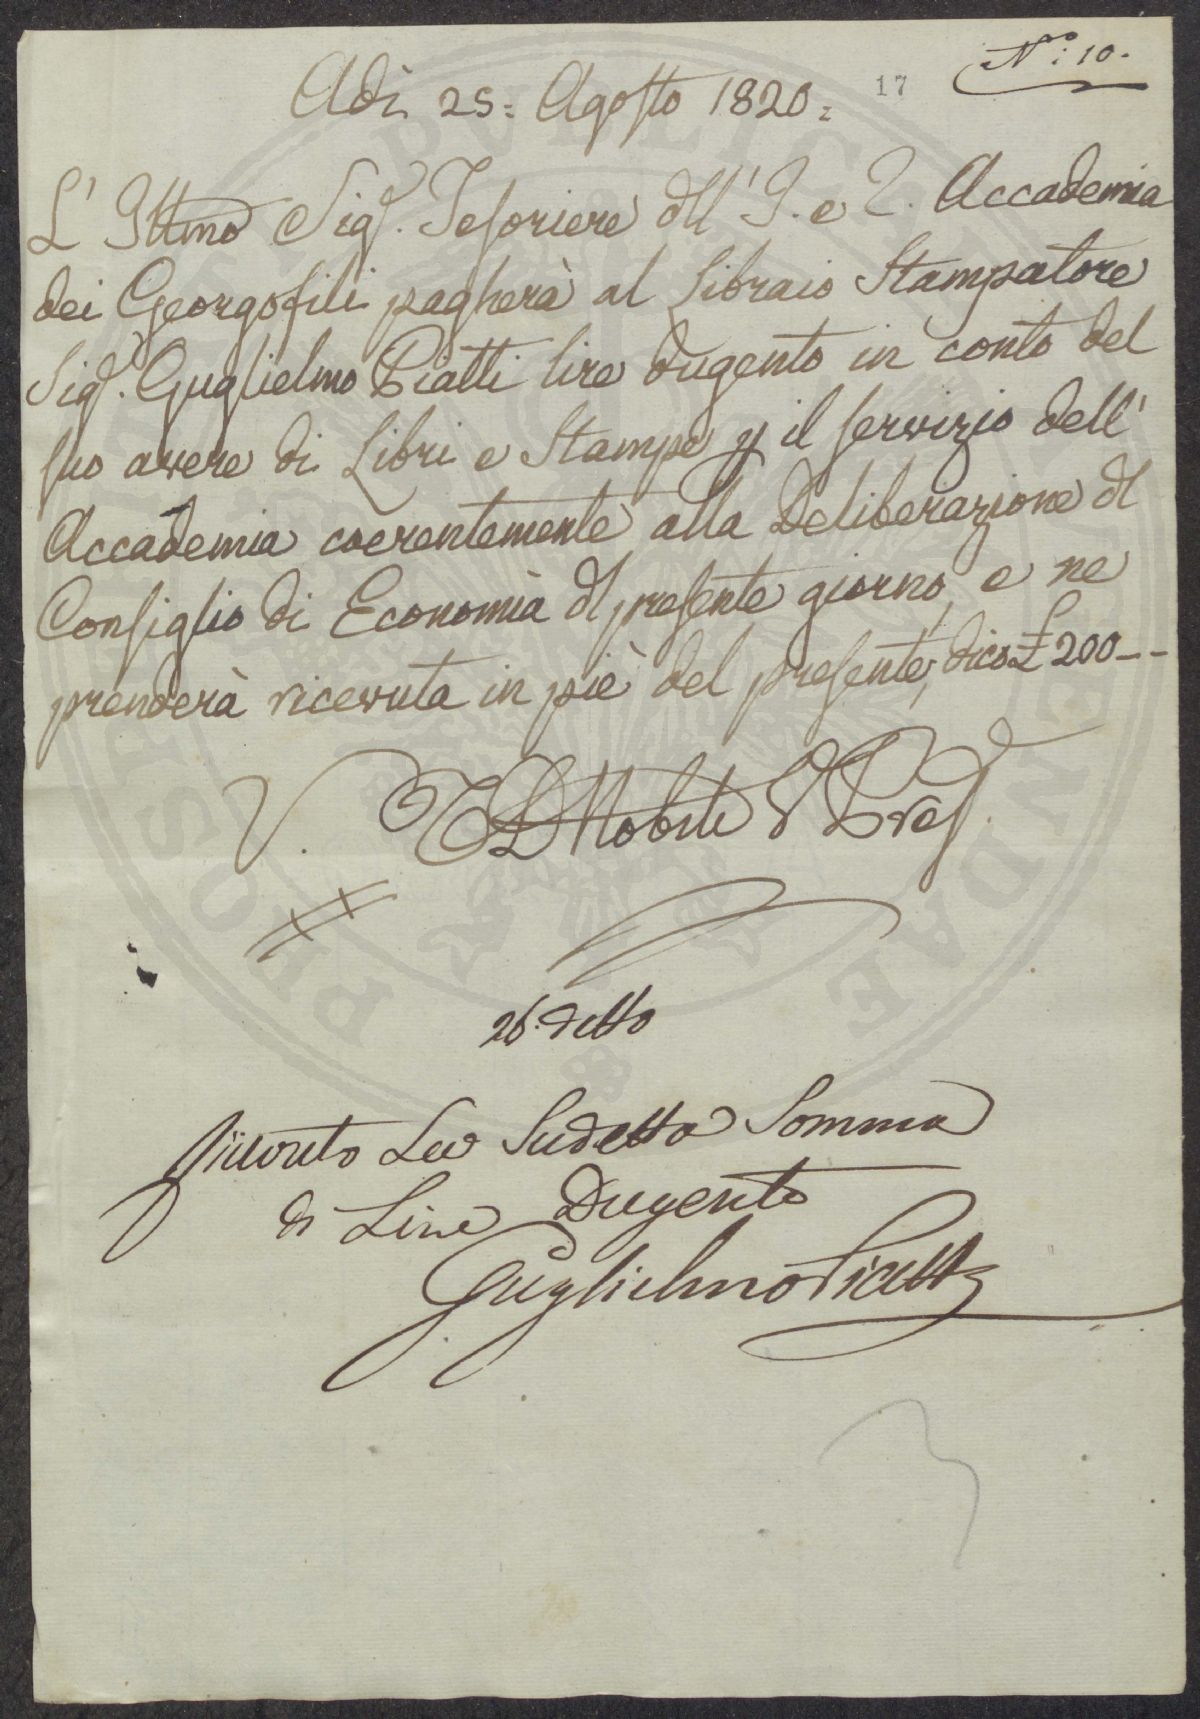 N.º: 10.
17
Adì 25= Agosto 1820=
L' Ill.mo Sig.r Tesoriere dll' I. e R. Accademia
dei Georgofili pagherà al Libraio Stampatore
Sig.r Guglielmo Piatti lire dugento in conto del
suo avere di Libri e Stampe p il servizio dell'
Accademia coerentemente alla Deliberazione dl
Consiglio di Economìa dl presente giorno, e ne
prenderà ricevuta in piè del presente, dico £ 200--
V. Nobili V. Pres.
26. detto
Ricevuto La Sudetta Somma
di Lire Dugento
Guglielmo Piatti
PROSPERITATI PUBLICAE AUGENDAE